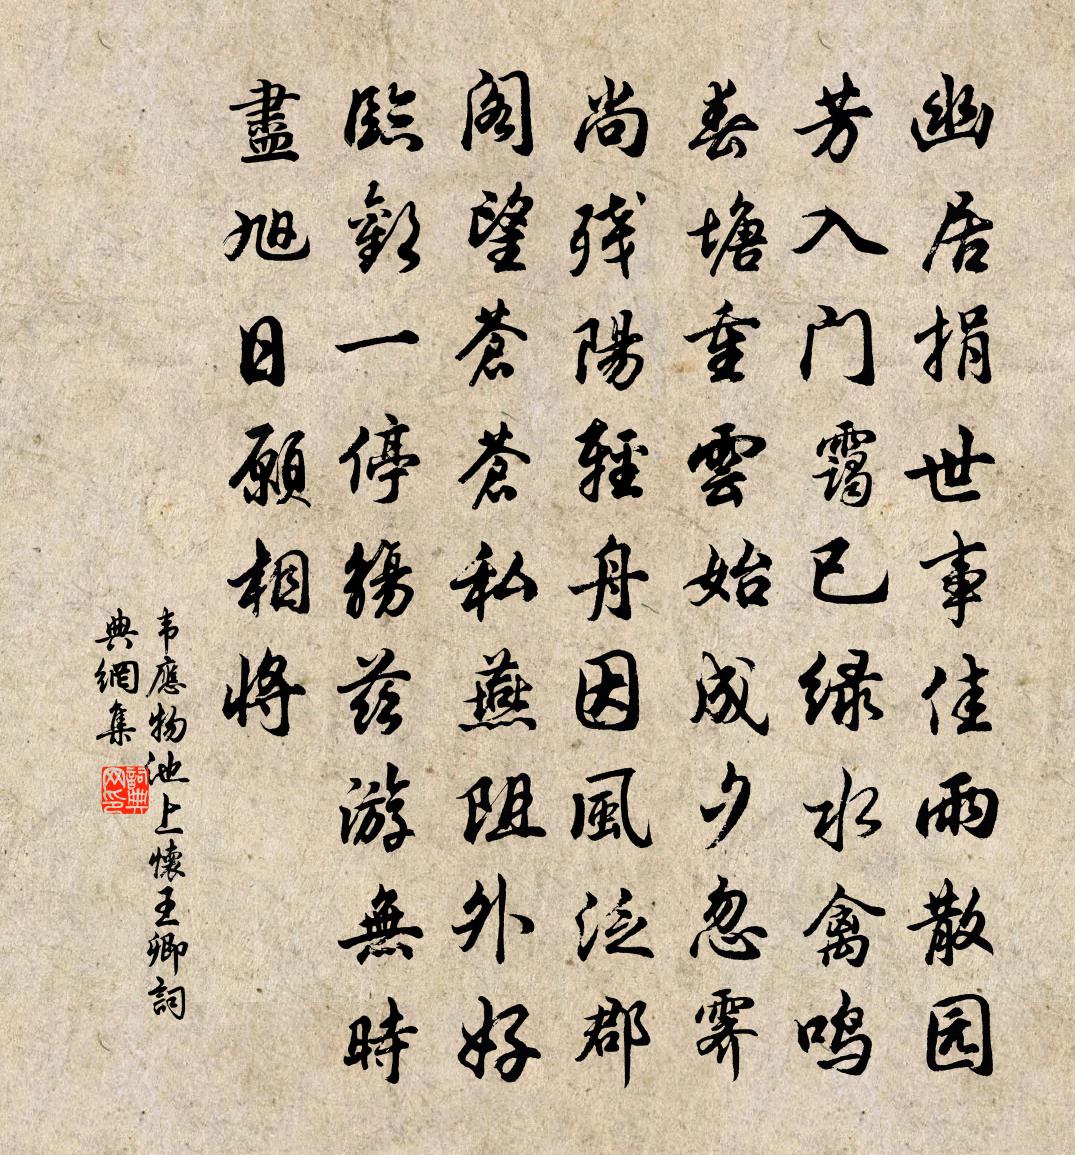 幽居捐世事佳雨散园
芳入门霭已绿水禽鸣
春塘重雲始成夕忽霽
尚残陽輕舟因風泛郡
阁望蒼蒼私燕阻外好
臨歡一停觴兹游無時
盡旭日願相将
韦應物池上懷王卿詞
典網集
詞典
网印